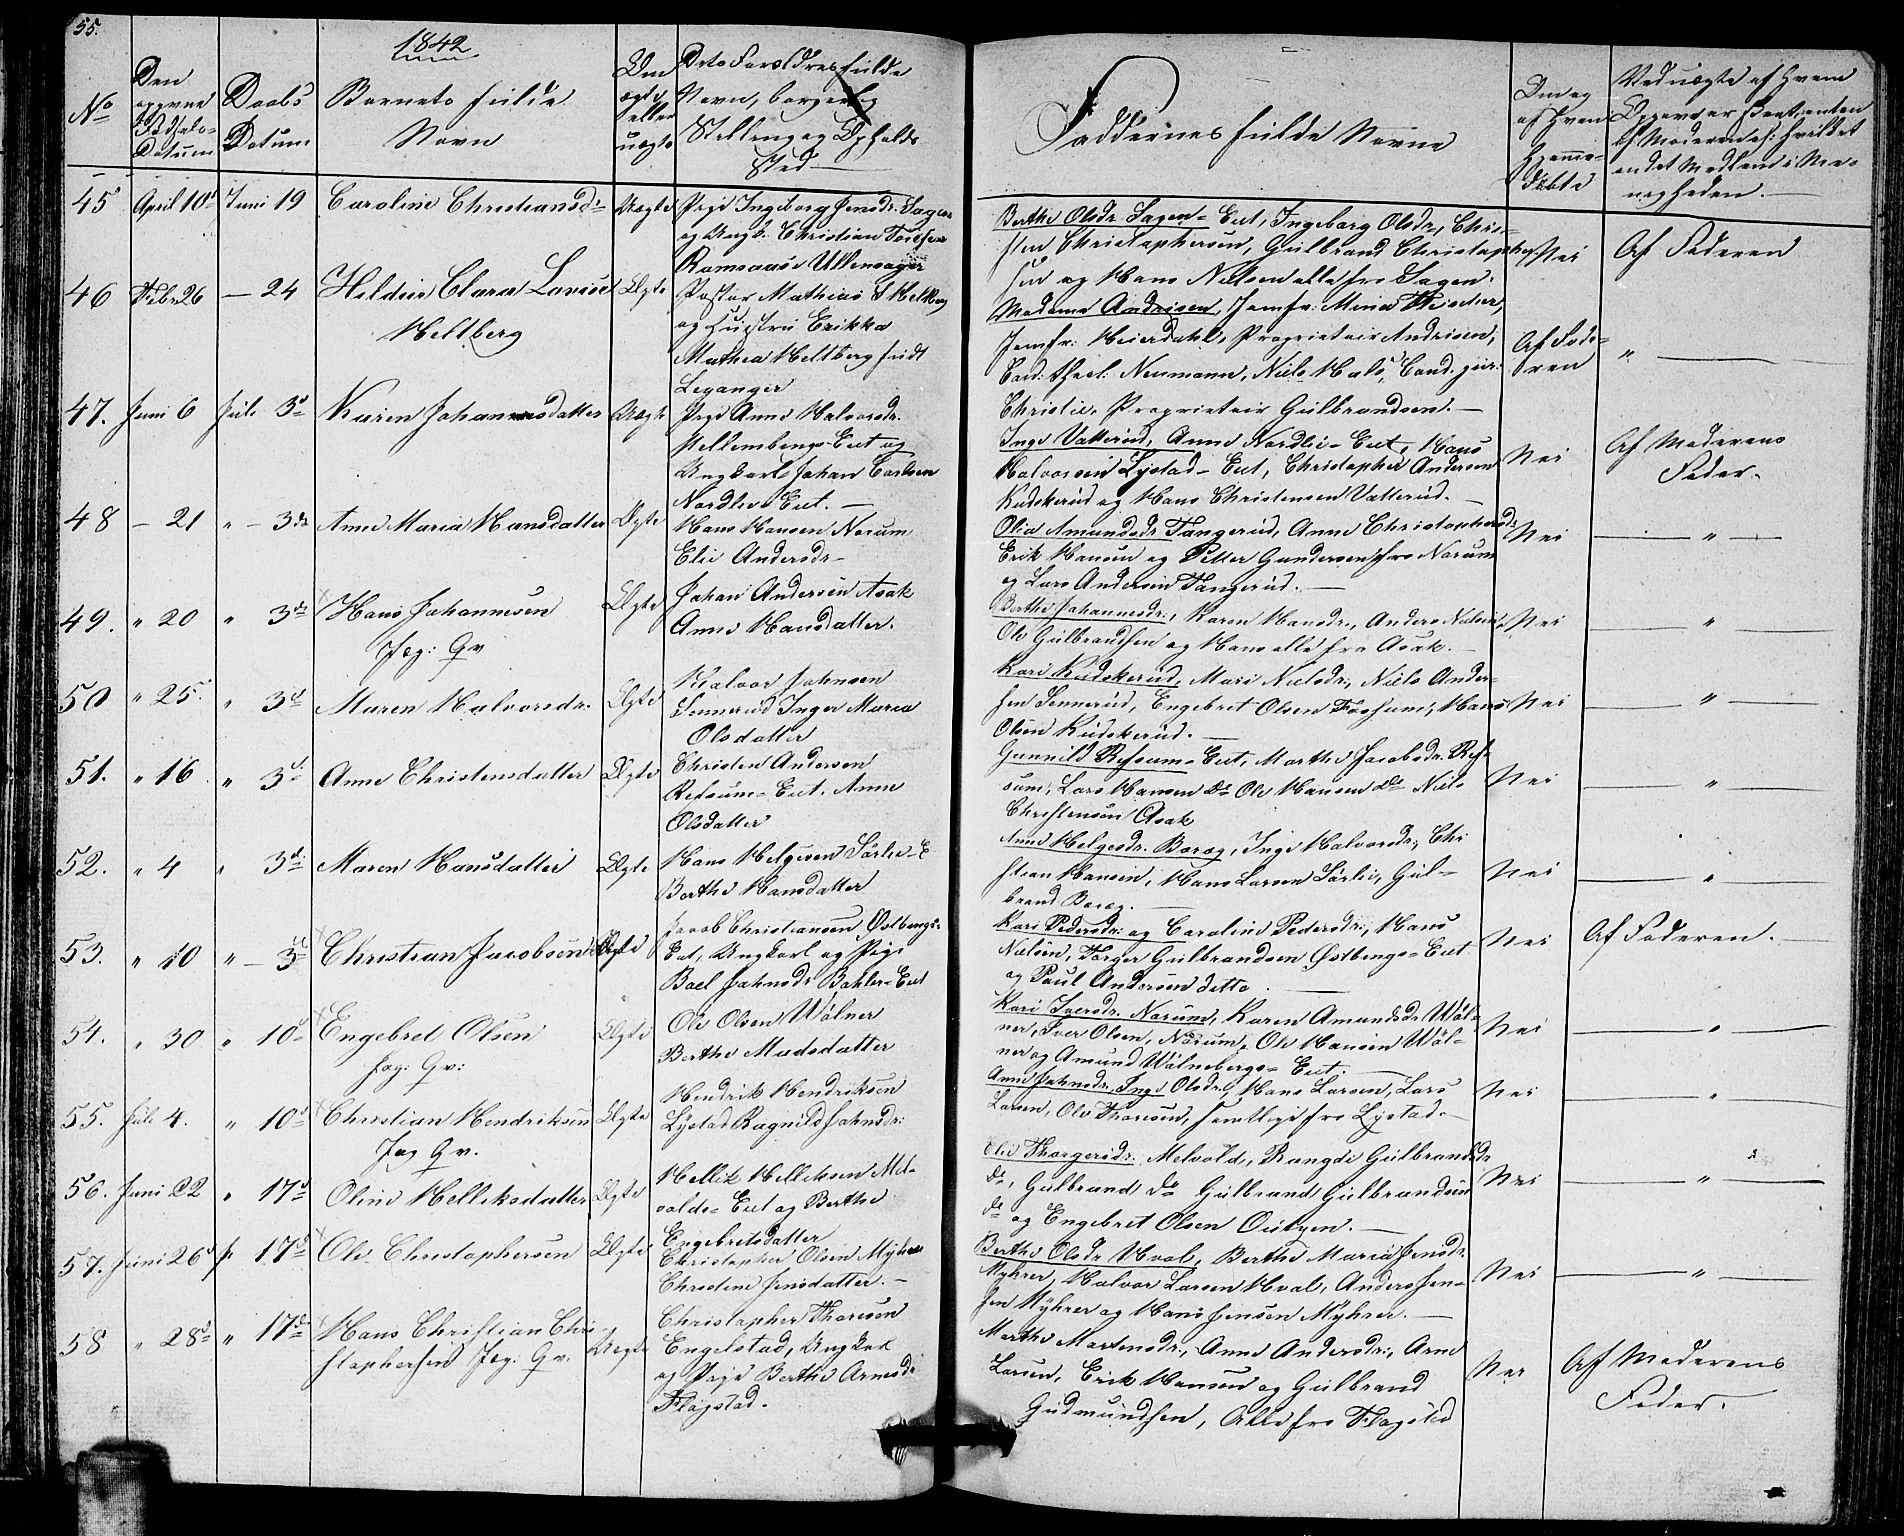 55.
1842
No
Den opgivne Fødsels-Datum
Daabs Datum
Barnets fulde Navn
Om ægte eller uægte
Dets Forældres fulde Navn, borgerlig Stilling og Opholds Sted
Faddernes fulde Navne
Om og af hvem hjemme-døbte
45 April 10d Juni 19 Caroline Christiansd. Uægte Pige Ingeborg Jensdr. Sagen
og Ungk. Christian
Ramsaas Ullensager
Berthe Olsdr. Sagen-Eiet, Ingeborg Olsdr, Chri-
sten Christophersen, Gulbrand Christopher-
sen og Hans Nielsen alle fra Sagen.
Nei Af Faderen
46 Febr 26 — 24 Clara Lovise
Heltberg
Ægte Pastor Mathias Heltberg
og Hustru Erikka
Mathea Heltberg født
Leganger
Madame Andresen, Jomfr: Mina
Jomfr: Heierdahl, Proprietair Andresen,
Cand: theol: Neumann, Niels Hals, Cand. jur:
Christie, Proprietair Gulbrandsen.
Af Fade-
ren
"
47. Juni 6 Juli 3d Karen Johannesdatter Uægte Pige Anne Halvorsdr.
Eiet og
Ungkarl Johan Carlsen
Nordlie Eiet.
Inge Vatterud, Anne Nordlie-Eiet, Hans
Halvorsen Lystad-Eiet, Christopher Andersen
Kudskerud og Hans Christensen Vatterud.
Nei Af Moderens
Fader.
48 — 21 " — 3de Anne Maria Hansdatter Ægte Hans Hansen Norum
Elie Andersdr-
Olia Amundsdr Tangerud, Anne Christophersdr
Erik Hansen og Petter Gundersen fra Norum
og Lars Andersen Tangerud.
Nei "
49. " 20 " 3de Hans Johannesen
Jag: Gv
Ægte Johan Andersen Asak
Anne Hansdatter.
Berthe Johannesdr., Karen Hansdr., Anders Nielsen,
Ole Gulbrandsen og Hans alle fra Asak.
Nei "
50 " 25. " 3d Maren Halvorsdr. Ægte Halvor Johnsen
Sennerud Inger Maria
Olsdatter
Kari Kudskerud, Mari Nielsdr., Niels Ander-
sen Sennerud, Engebret Olsen Fossum, Hans
Olsen Kudskerud.
Nei "
51. " 16 " 3d Anne Christensdatter Ægte Christen Andersen
Refsum-Eiet. Anne
Olsdatter
Gunnild Refsum-Eiet, Marthe Jacobsdr. Ref-
sum, Lars Hansen do Ole Hansen do Niels
Christensen Asak
Nei "
52. " 4 " 3d Maren Hansdatter Ægte Hans Helgesen Sørlie-E
Berthe Hansdatter
Anne Helgesdr. Boræg, Inge Halvorsdr., Chri
stian Hansen, Hans Larsen Sørlie, Gul-
brand Boræg.
Nei "
53. " 10 " — 3d Christian Jacobsen Jacob Christiansen Østbengs-
Eiet, Ungkarl og Pige
Boel Johnsdr Bohler-Eiet
Kari Pedersdr: og Caroline Pedersdr., Hans
Nielsen, Torger Gulbrandsen Østbengs-Eiet
og Paul Andersen ditto.
Nei Af Faderen.
54. " 30 " 10d Engebret Olsen
Jag: Gv:
Ægte Ole Olsen Wølner
Berthe Madsdatter
Kari Iversdr. Norum, Karen Amundsdr Wøl-
ner, Iver Olsen, Norum, Ole Hansen Wøl-
ner og Amund Wølneberg-Eiet.
Nei "
55. Juli 4. " 10d Christian Hendriksen
Jag Gv.
Ægte Hendrik Hendriksen
Lystad Ragnild Johnsdr:
Anne Johnsdr., Inge Olsdr., Hans Larsen, Lars
Larsen, Ole Thoresen, samtlige fra Lystad.
Nei "
56. Juni 22 " 17d Oline Helliksdatter Ægte Hellik Helliksen Mel-
volds-Eiet og Berthe
Engebretsdatter
Thorgersdr. Melvold, Rangdi Gulbrandsdr
do, Gulbrand do Gulbrand Gulbrandsen
do og Engebret Olsen
Nei "
57. Juni 26d 17d Ole Christophersen Ægte Christopher Olsen Myhrer
Christine Jensdatter.
Berthe Olsdr. Hval, Berthe Maria Jensdr.
Myhrer, Halvor Larsen Hval, Anders Jen-
sen Myhrer og Hans Jensen Myhrer.
Nei "
58 " 28d " 17de Hans Christian Chri-
stophersen Jag: Gv.
Uægte Christopher Thoresen
Engelstad, Ungkar
og Pige Berthe Arnesdr
Flagstad.
Marthe Martensdr., Anne Andersdr., Arne
Larsen, Erik Hansen og Gulbrand
Gudmundsen, Alle fra Flagsted
Nei Af Moderens
Fader.